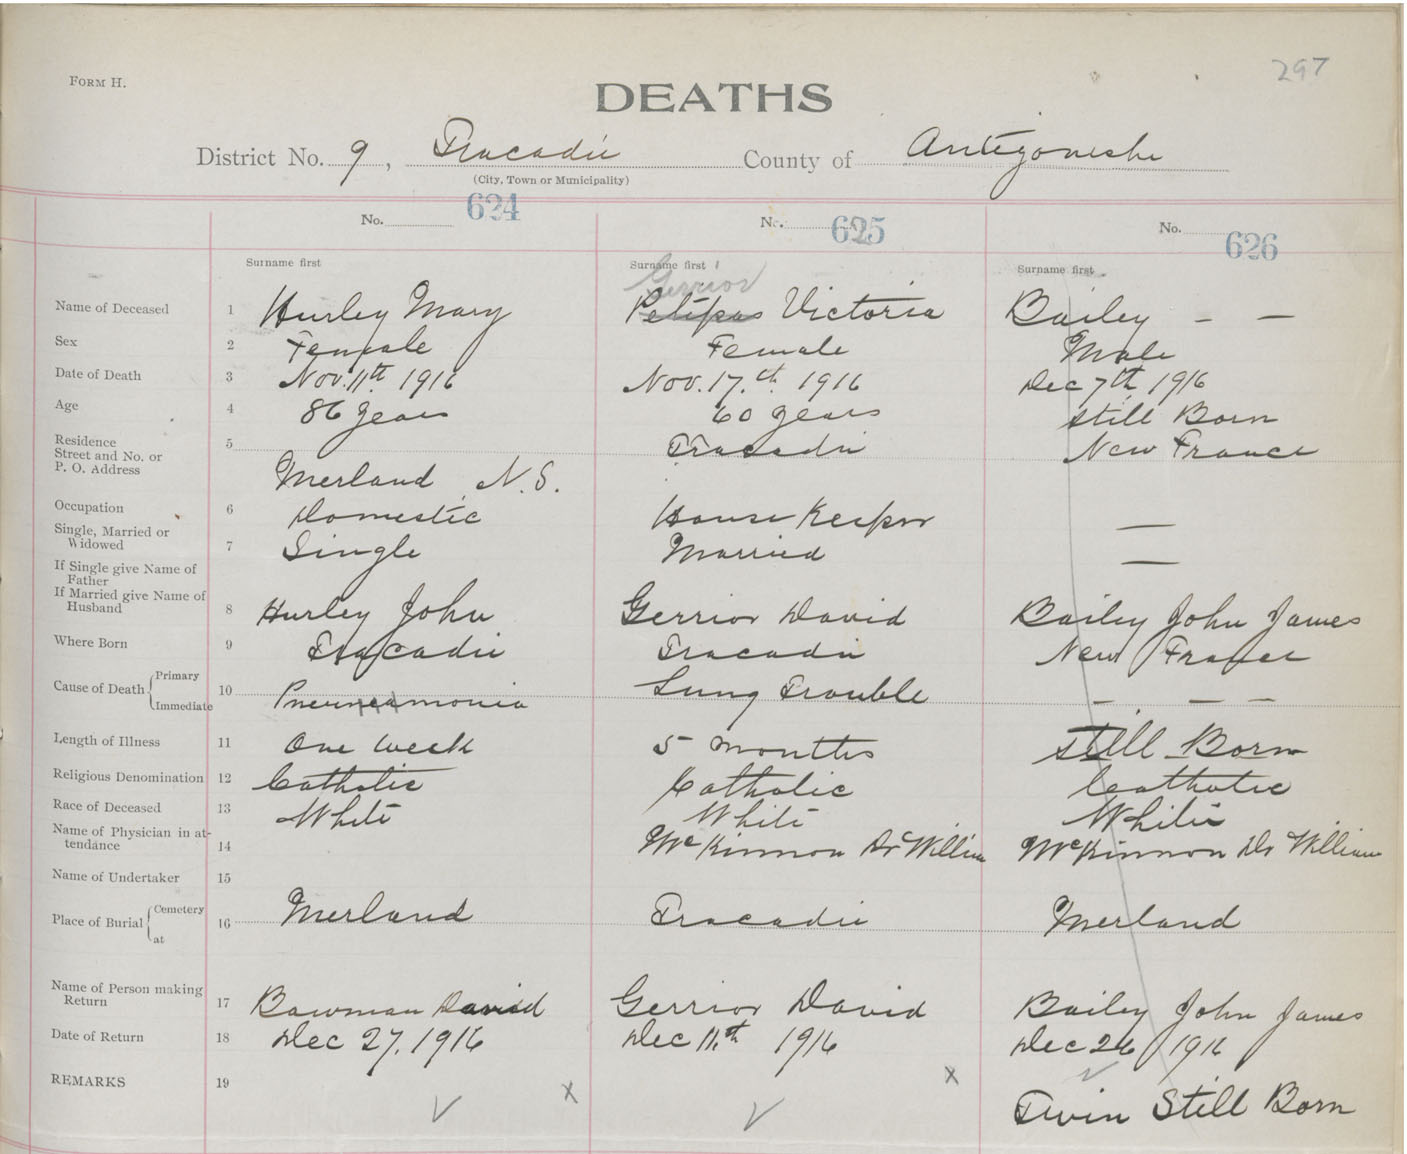 297
FORM H.
DEATHS
District No. 9, Tracadie County of Antigonishe
(City, Town or Municipality)
No. 624 No. 625 No. 626
Surname first Surname first Surname first
Gerrior
Name of Deceased 1 Hurley Mary Petipas Victoria Bailey — —
Sex 2 Female Female Male
Date of Death 3 Nov. 11th 1916 Nov. 17.th 1916 Dec 7th 1916
Age 4 86 years 60 years Still Born
Residence
Street and No. or
P. O. Address 5 Merland N.S. Tracadie New France
Occupation 6 Domestic House Keeper —
Single, Married or
Widowed 7 Single Married —
If Single give Name of
Father
If Married give Name of
Husband 8 Hurley John Gerrior David Bailey John James
Where Born 9 Tracadie Tracadie New France
Cause of Death Primary
Immediate 10 Pneumonia Lung Trouble — — —
Length of Illness 11 One Week 5 months Still Born
Religious Denomination 12 Catholic Catholic Catholic
Race of Deceased 13 White White White
Name of Physician in at-
tendance 14 McKinnon Dr William McKinnon Dr William
Name of Undertaker 15
Place of Burial Cemetery
at 16 Merland Tracadie Merland
Name of Person making
Return 17 Bowman David Gerrior David Bailey John James
Date of Return 18 Dec 27, 1916 Dec 11.th 1916 Dec 26 1916
REMARKS 19 x x Twin Still Born